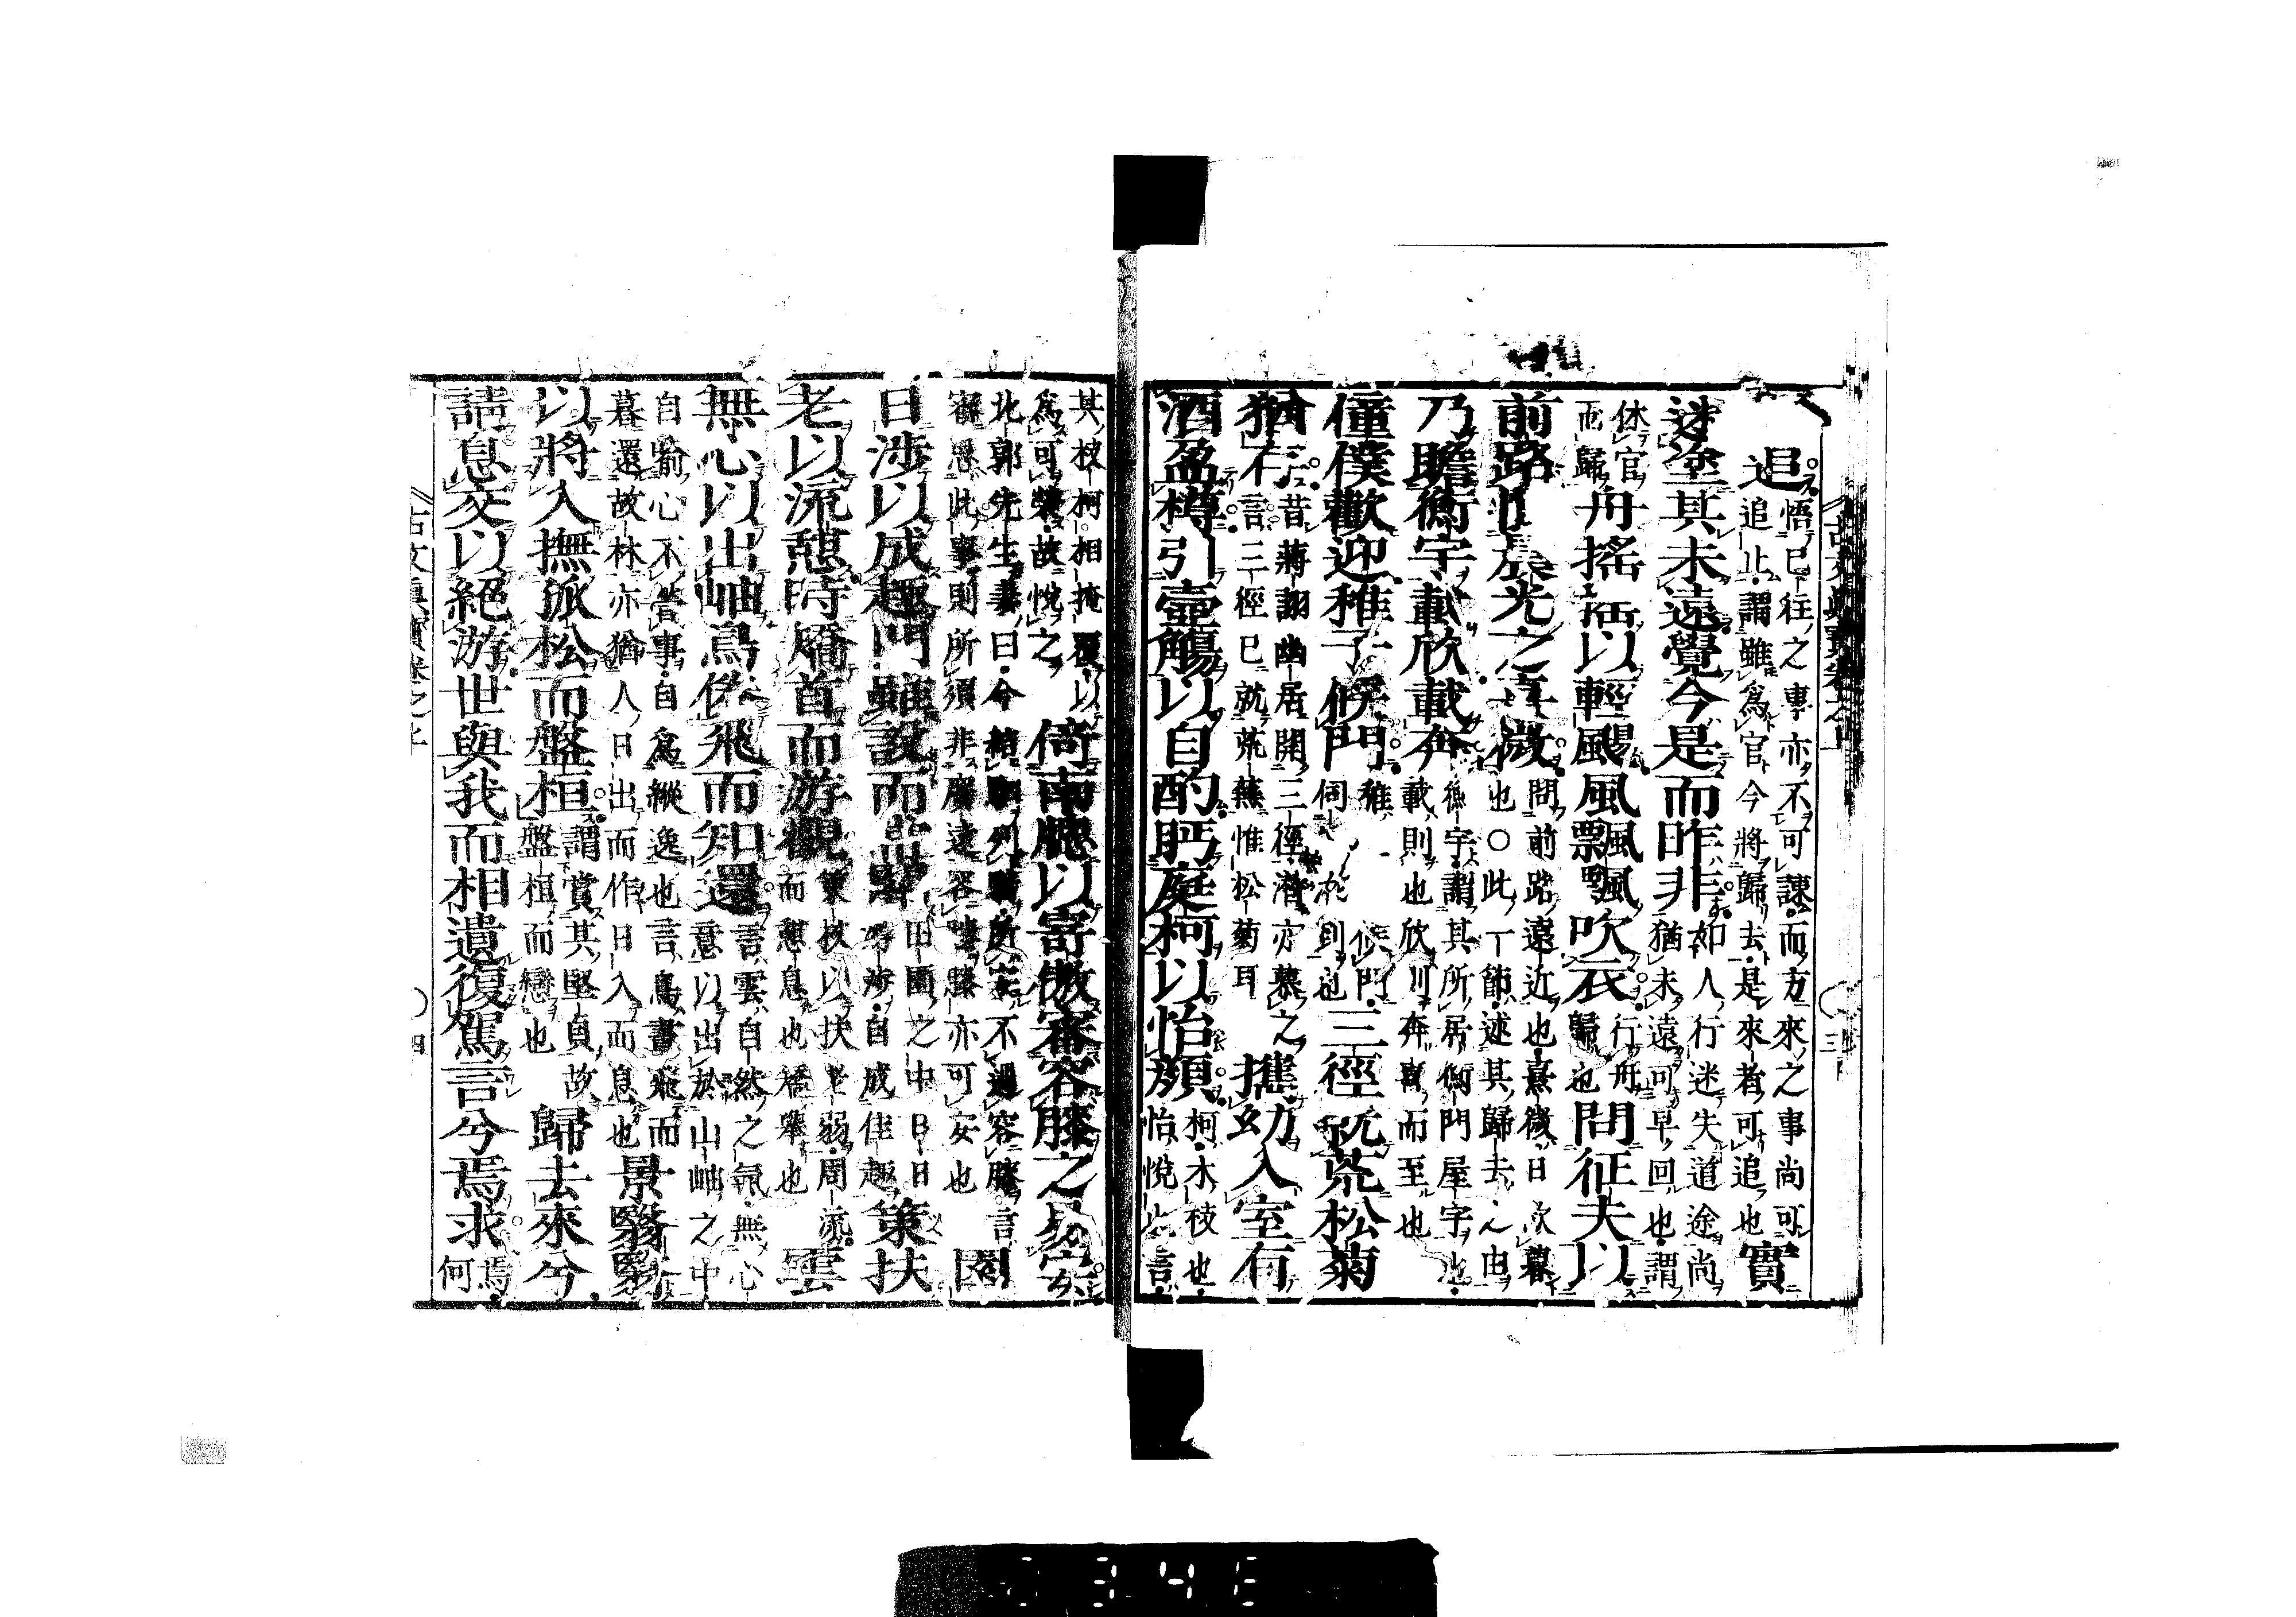 追悟已往之事亦不可諫而方來之事尚可
追止謂雖爲官今將歸去是來者可追也實
迷塗其未遠覺今是而昨非如人行迷失道途尚
猶未遠可早回也謂
休官行舟
而歸舟搖搖以輕颺風飄飄吹衣歸也問征夫以
前路恨晨光之熹微問前路遠近也熹微日欲暮
也○此一節述其歸去之由
乃瞻衡宇載欣載奔衡宇謂其所居衡門屋宇也
載則也欣川奔喜而至也
僮僕歡迎稚子候門稚候門
伺三徑就荒松菊
猶存昔蔣詡幽居開三徑潛亦慕之
言三徑已就荒蕪惟松菊耳攜幼入室有
酒盈樽引壺觴以自酌眄庭柯以怡顏柯木枝也
怡悅也言
其枝柯相掩覆以
爲可樂故悅之倚南牕以寄傲審容膝之易安
北郭先生妻曰今結駟列騎所安不過容膝言
審思此事則所須非廣速容膝亦可安也園
日涉以成趣門雖設而常關田園之中日日
涉自成佳趣策扶
老以流憩時矯首而游觀策杖以扶老弱周流
而憩息也矯舉也雲
無心以出岫鳥倦飛而知還言雲自然之氣無心
意以出於山岫之中
自喻心不營事自爲縱逸也言鳥晝飛而
暮還故林亦猶人日出而作日入而息也景翳翳
以將入撫孤松而盤桓謂賞其堅貞故
盤桓而戀也歸去來兮
請息交以絕游世與我而相遺復駕言兮焉求焉
何